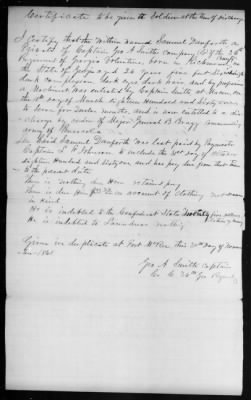 Certificate to be given to Soldier at the time of discharge
I certify that the Within named Samuel Danforth a
Private of Captain Geo A Smith Company (C) of the 26th
Regiment of Georgia Volunteers, born in Richmond
the State of Georgia aged 26 years five feet
dark Complexion Black eyes Dark hair and by profession
a Machinist was enlisted by Captain Smith at Macon on
the 1st day of March Eighteen Hundred and Sixty one
to serve for twelve months and is now entitled to a dis-
charge by order of Major General B Bragg commanding
army of Pensacola
The Said Samuel Danforth was last paid by Paymaster
Captain to include the day of
Eighteen Hundred Sixty one and has pay due from that time
to the present date
There is nothing due Him retained pay
There is due Him on account of clothing not drawn
in kind
He is indebted to the Confederate States
He is indebted to Laundress nothing
Given in duplicate at Fort McRee this 20th day of Novem-
ber 1861
Geo A Smith Captain
Co C 26th Geo Regiment